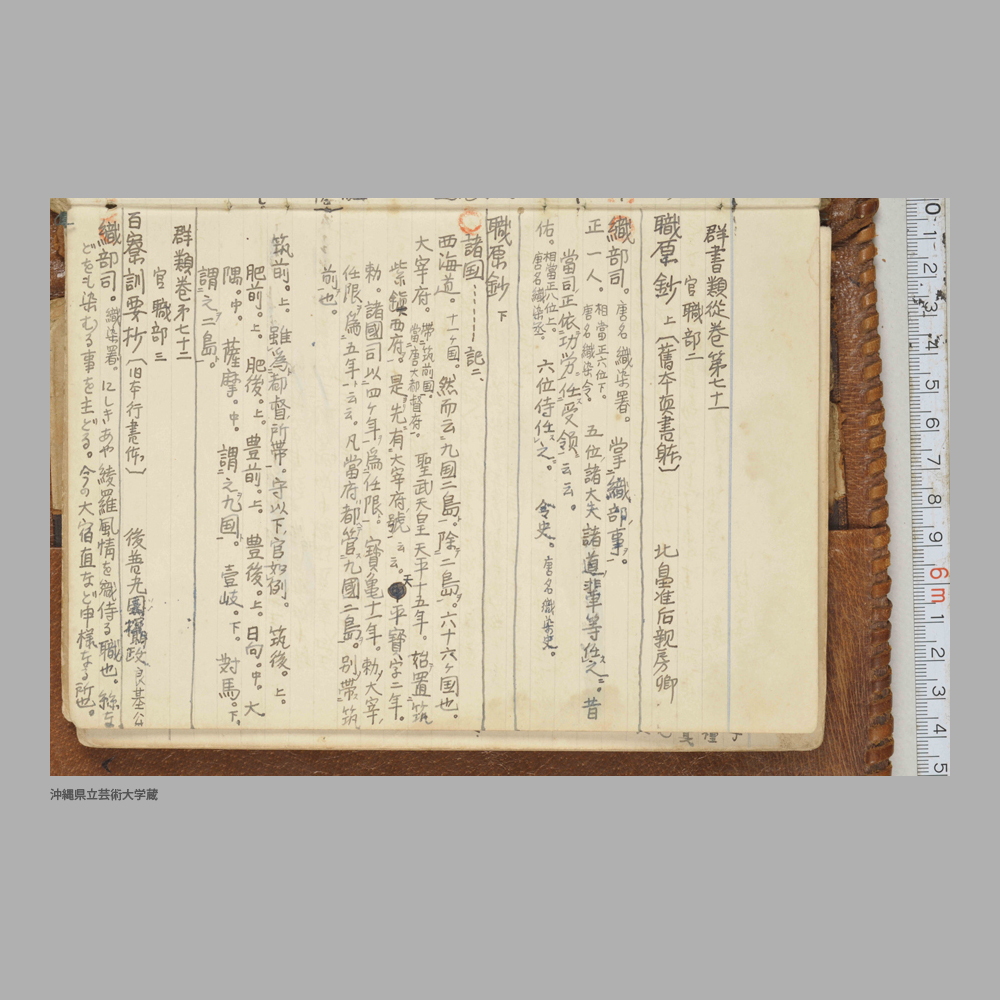 群書類従巻第七十一
官職部二
職原鈔 上 〔舊本真書躰〕 北畠准后親房卿
織部司。唐名 織染署。 掌織部事。
正一人。相當正六位下。唐名織染令。 五位諸大夫諸道輩等任之。昔
當司正依功労任受領云云。
佑。相當正八位上。唐名織染丞。 六位侍任之。 令史。唐名織染史。
職原鈔 下
諸国、 記ニ、
西海道。十一ヶ国。然而云九國二島。除二島。六十六ヶ国也。
大宰府。帯筑前国。當唐大都督府。 聖武天皇天平十五年。始置筑
紫鎮西府。是先有大宰府號云云。天平寳字二年。
勅。諸國司以四ヶ年爲任限。寳亀十一年。勅大宰
任限爲五年云云。凡當府都管九國二島。別帯筑
前也。
筑前。上。雖爲都督所帯。守以下官如例。 筑後。上。
肥前。上。 肥後。上。豊前。上。 豊後。上。日向。中。大
隅。中。 薩摩。中。謂之九国。 壹岐。下。 對馬。下。
謂之二島。
群類巻第七十二
官職部三
百寮訓要抄〔旧本行書体〕 後普光園摂政良基公
織部司。織染署。にしきあや綾羅風情を織侍る職也。絲な
どをも染むる事を主どる。今の大宿直など申様なる所也。
0 1 2 3 4 5 6 7 8 9 6m 1 2 3 4 5
沖縄県立芸術大学蔵